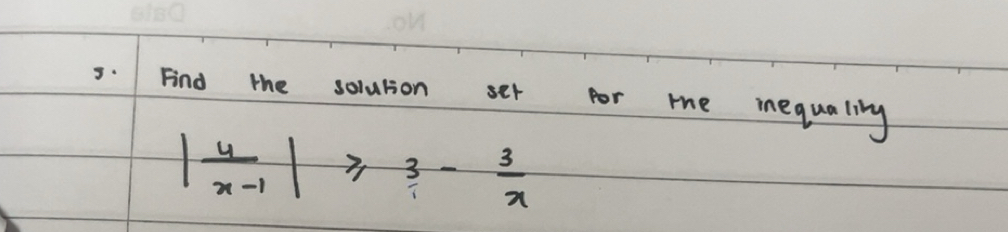 Date
No.
5. Find the solution set for the inequality
|4/(x-1)| ≥ 3 - 3/x